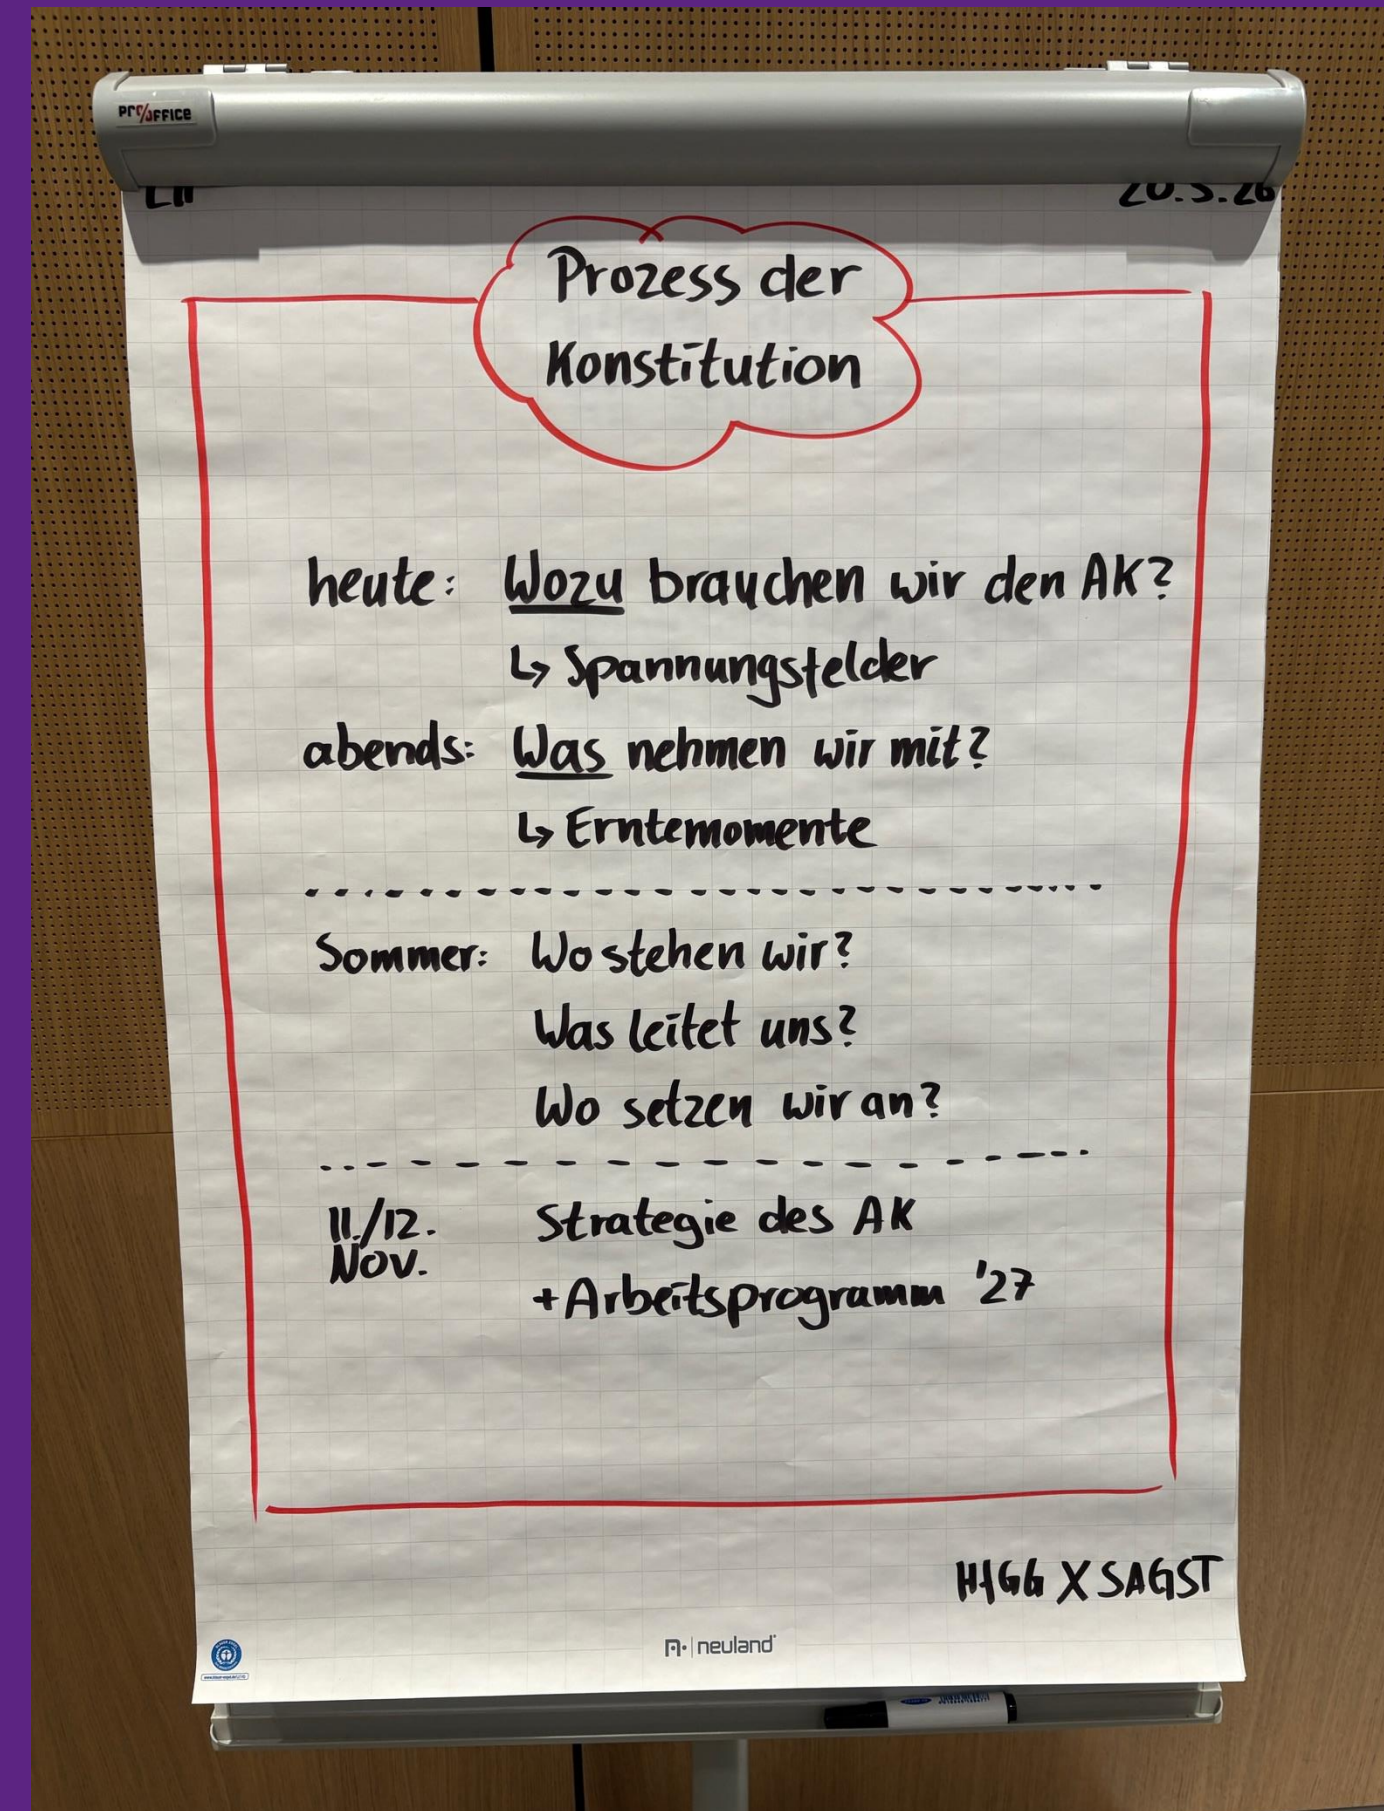 Pro/office
20.5.26
Prozess der
Konstitution
heute: Wozu brauchen wir den AK?
↳ Spannungsfelder
abends: Was nehmen wir mit?
↳ Erntemomente
Sommer: Wo stehen wir?
Was leitet uns?
Wo setzen wir an?
11./12. Strategie des AK
Nov.
+ Arbeitsprogramm '27
X SAGST
neuland